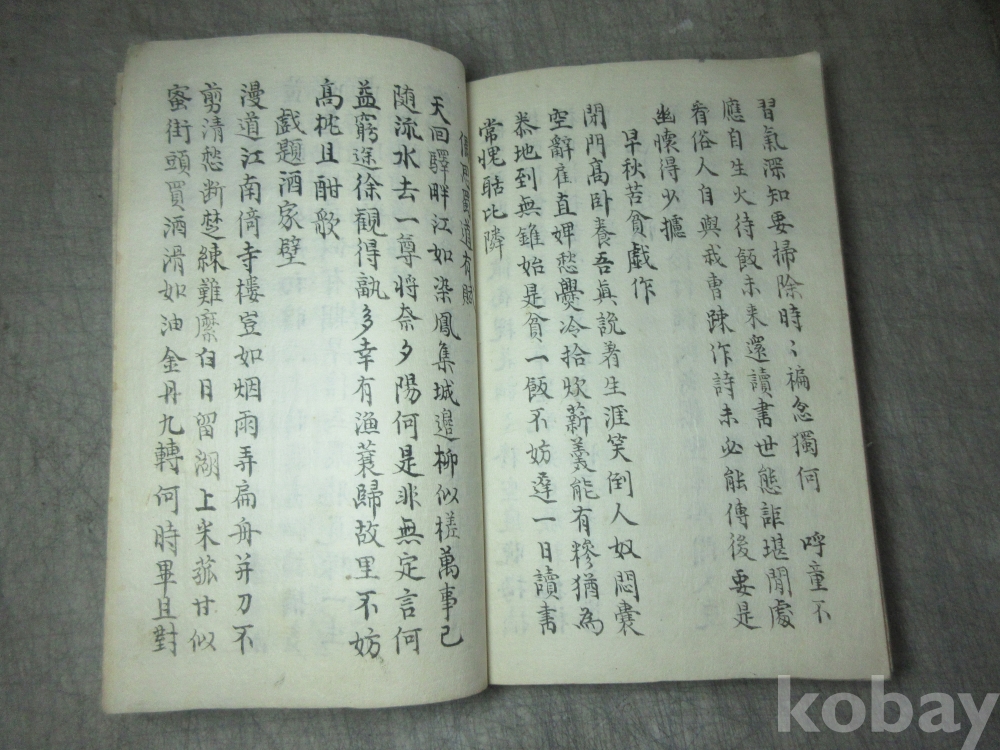 習氣深知要掃除時〻褊忿獨何 呼童不
應自生火待飯未來還讀書世態詎堪閒處
看俗人自與我曹踈作詩未必能傳後要是
幽懷得少攄
早秋苦貧戱作
閉門高卧養吾眞說着生涯笑倒人奴悶囊
空辭雇直婢愁爨冷拾炊薪羹能有糝猶為
泰地到無錐始是貧一飯不妨達一日讀書
常愧聒比隣
道有
天回驛畔江如染鳳集城邉柳似槎萬事已
随流水去一尊將奈夕陽何是非無定言何
益窮途徐觀得孰多幸有漁蓑歸故里不妨
高枕且酣歌
戱題酒家壁
漫道江南倚寺樓豈如烟雨弄扁舟并刀不
剪清愁断楚練難縻白日留湖上米菰甘似
蜜街頭買酒滑如油金丹九轉何時畢且對
kobay